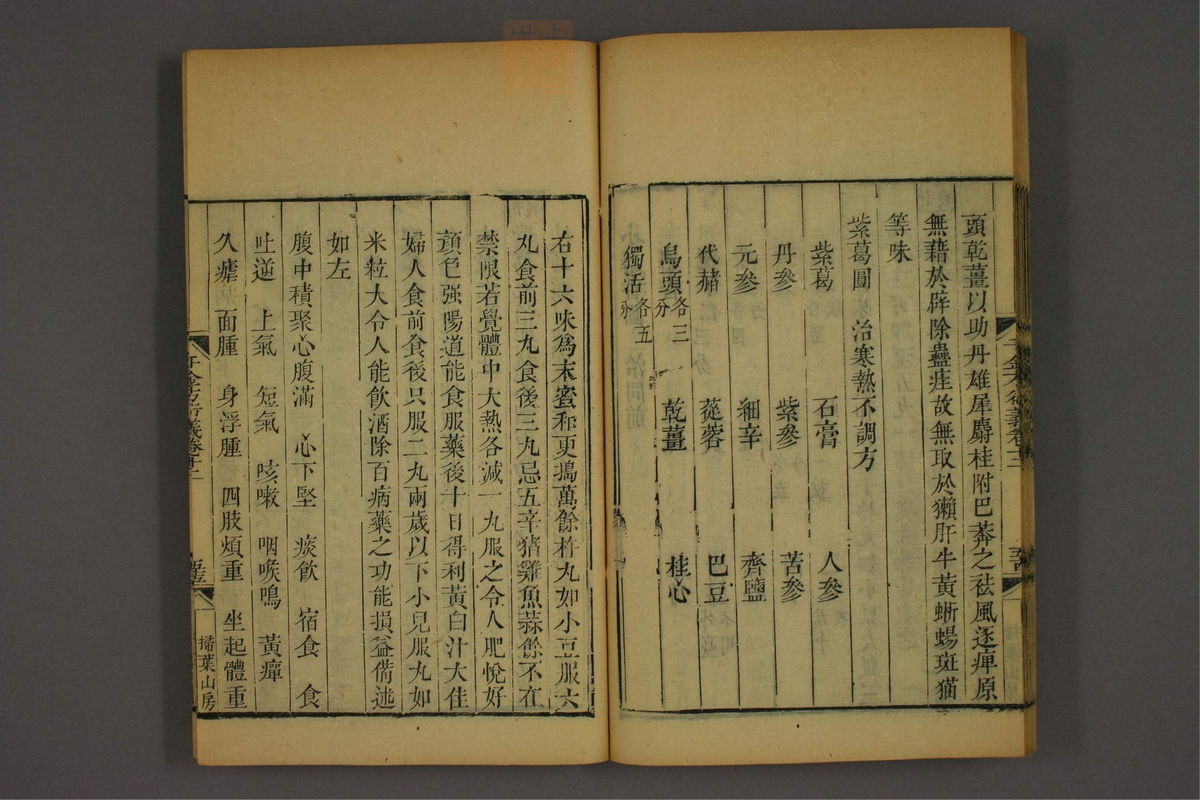 頭乾薑以助丹雄犀麝桂附巴莽之祛風逐痺原
無藉於辟除蠱疰故無取於獺肝牛黃蜥蜴斑猫
等味
紫葛圓　治寒熱不調方
紫葛　石膏　人參
丹參　紫參　苦參
元參　細辛　齊鹽
代赭　蓯蓉　巴豆
烏頭各三分　乾薑　桂心
獨活各五分
右十六味爲末蜜和更搗萬餘杵丸如小豆服六
丸食前三丸食後三丸忌五辛猪雞魚蒜餘不在
禁限若覺體中大熱各減一丸服之令人肥悅好
顏色强陽道能食服藥後十日得利黃白汁大佳
婦人食前食後只服二丸兩歲以下小兒服丸如
米粒大令人能飲酒除百病藥之功能損益備述
如左
腹中積聚心腹滿　心下堅　痰飲　宿食　食
吐逆　上氣　短氣　咳嗽　咽喉鳴　黃癉
久瘧　面腫　身浮腫　四肢煩重　坐起體重
千金方衍義卷十二
掃葉山房